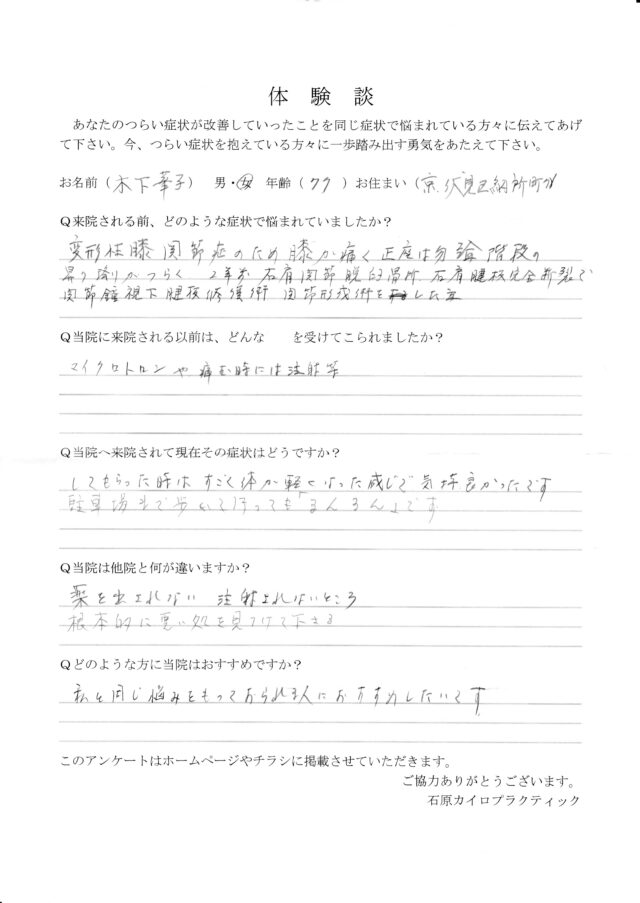 体 験 談
あなたのつらい症状が改善していったことを同じ症状で悩まれている方々に伝えてあげ
て下さい。今、つらい症状を抱えている方々に一歩踏み出す勇気をあたえて下さい。
お名前（木下華子） 男・女 年齢（77）お住まい（京 伏見区納所町）
Q来院される前、どのような症状で悩まれていましたか？
変形性膝関節症のため膝が痛く正座は勿論階段の
昇り降りがつらく 2年前 右肩関節脱臼骨折 右肩腱板完全断裂で
関節鏡視下腱板修復術 関節形成術をした
Q当院に来院される以前は、どんな を受けてこられましたか？
マイクロトロンや痛む時には注射等
Q当院へ来院されて現在その症状はどうですか？
してもらった時は すごく体が軽くなった感じで気持良かったです
駐車場まで歩いて行っても「るんるん」です
Q当院は他院と何が違いますか？
薬を出されない 注射されないところ
根本的に悪い処を見つけて下さる
Qどのような方に当院はおすすめですか？
私と同じ悩みをもっておられる人におすすめしたいです
このアンケートはホームページやチラシに掲載させていただきます。
ご協力ありがとうございます。
石原カイロプラクティック